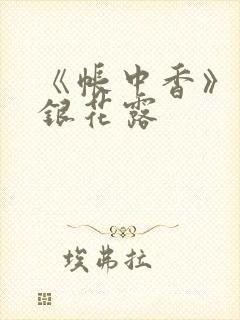 《帐中香》
银花露
埃弗拉